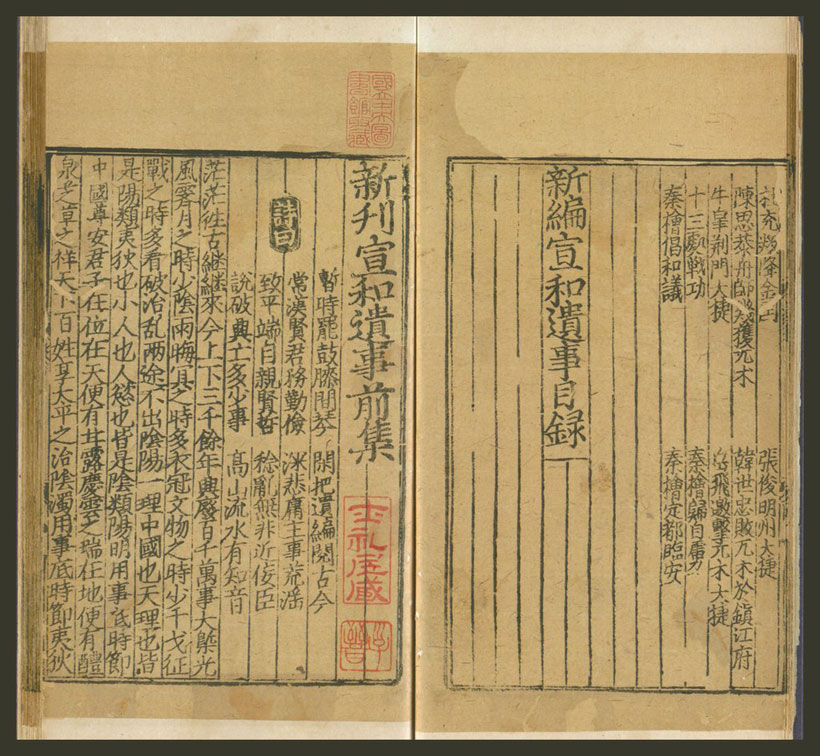 張俊明州大捷
陳思恭舟師幾獲兀术
韓世忠敗兀术於鎮江府
牛皐荆門大捷
岳飛邀擊兀术大捷
十三處戰功
秦檜歸自虜
秦檜倡和議
秦檜定都臨安
新編宣和遺事目録
新刊宣和遺事前集
士礼居藏
詩曰
暫時罷鼓膝間琴
閑把遺編閱古今
常漢賢君務勤儉
深悲庸主事荒淫
致平端自親賢哲
稔亂無非近佞臣
說破興亡多少事
高山流水有知音
茫茫徃古継継來今上下三千餘年興廢百千萬事大槩光
風霽月之時少陰雨晦冥之時多衣冠文物之時少干戈征
戰之時多看破治乱兩途不出陰陽一理中國也天理也皆
是陽類夷狄也小人也人慾也皆是陰類陽明用事底時節
中國尊安君子在位在天便有甘露慶雲之瑞在地便有醴
泉芝草之祥天下百姓享太平之治陰濁用事底時節夷狄